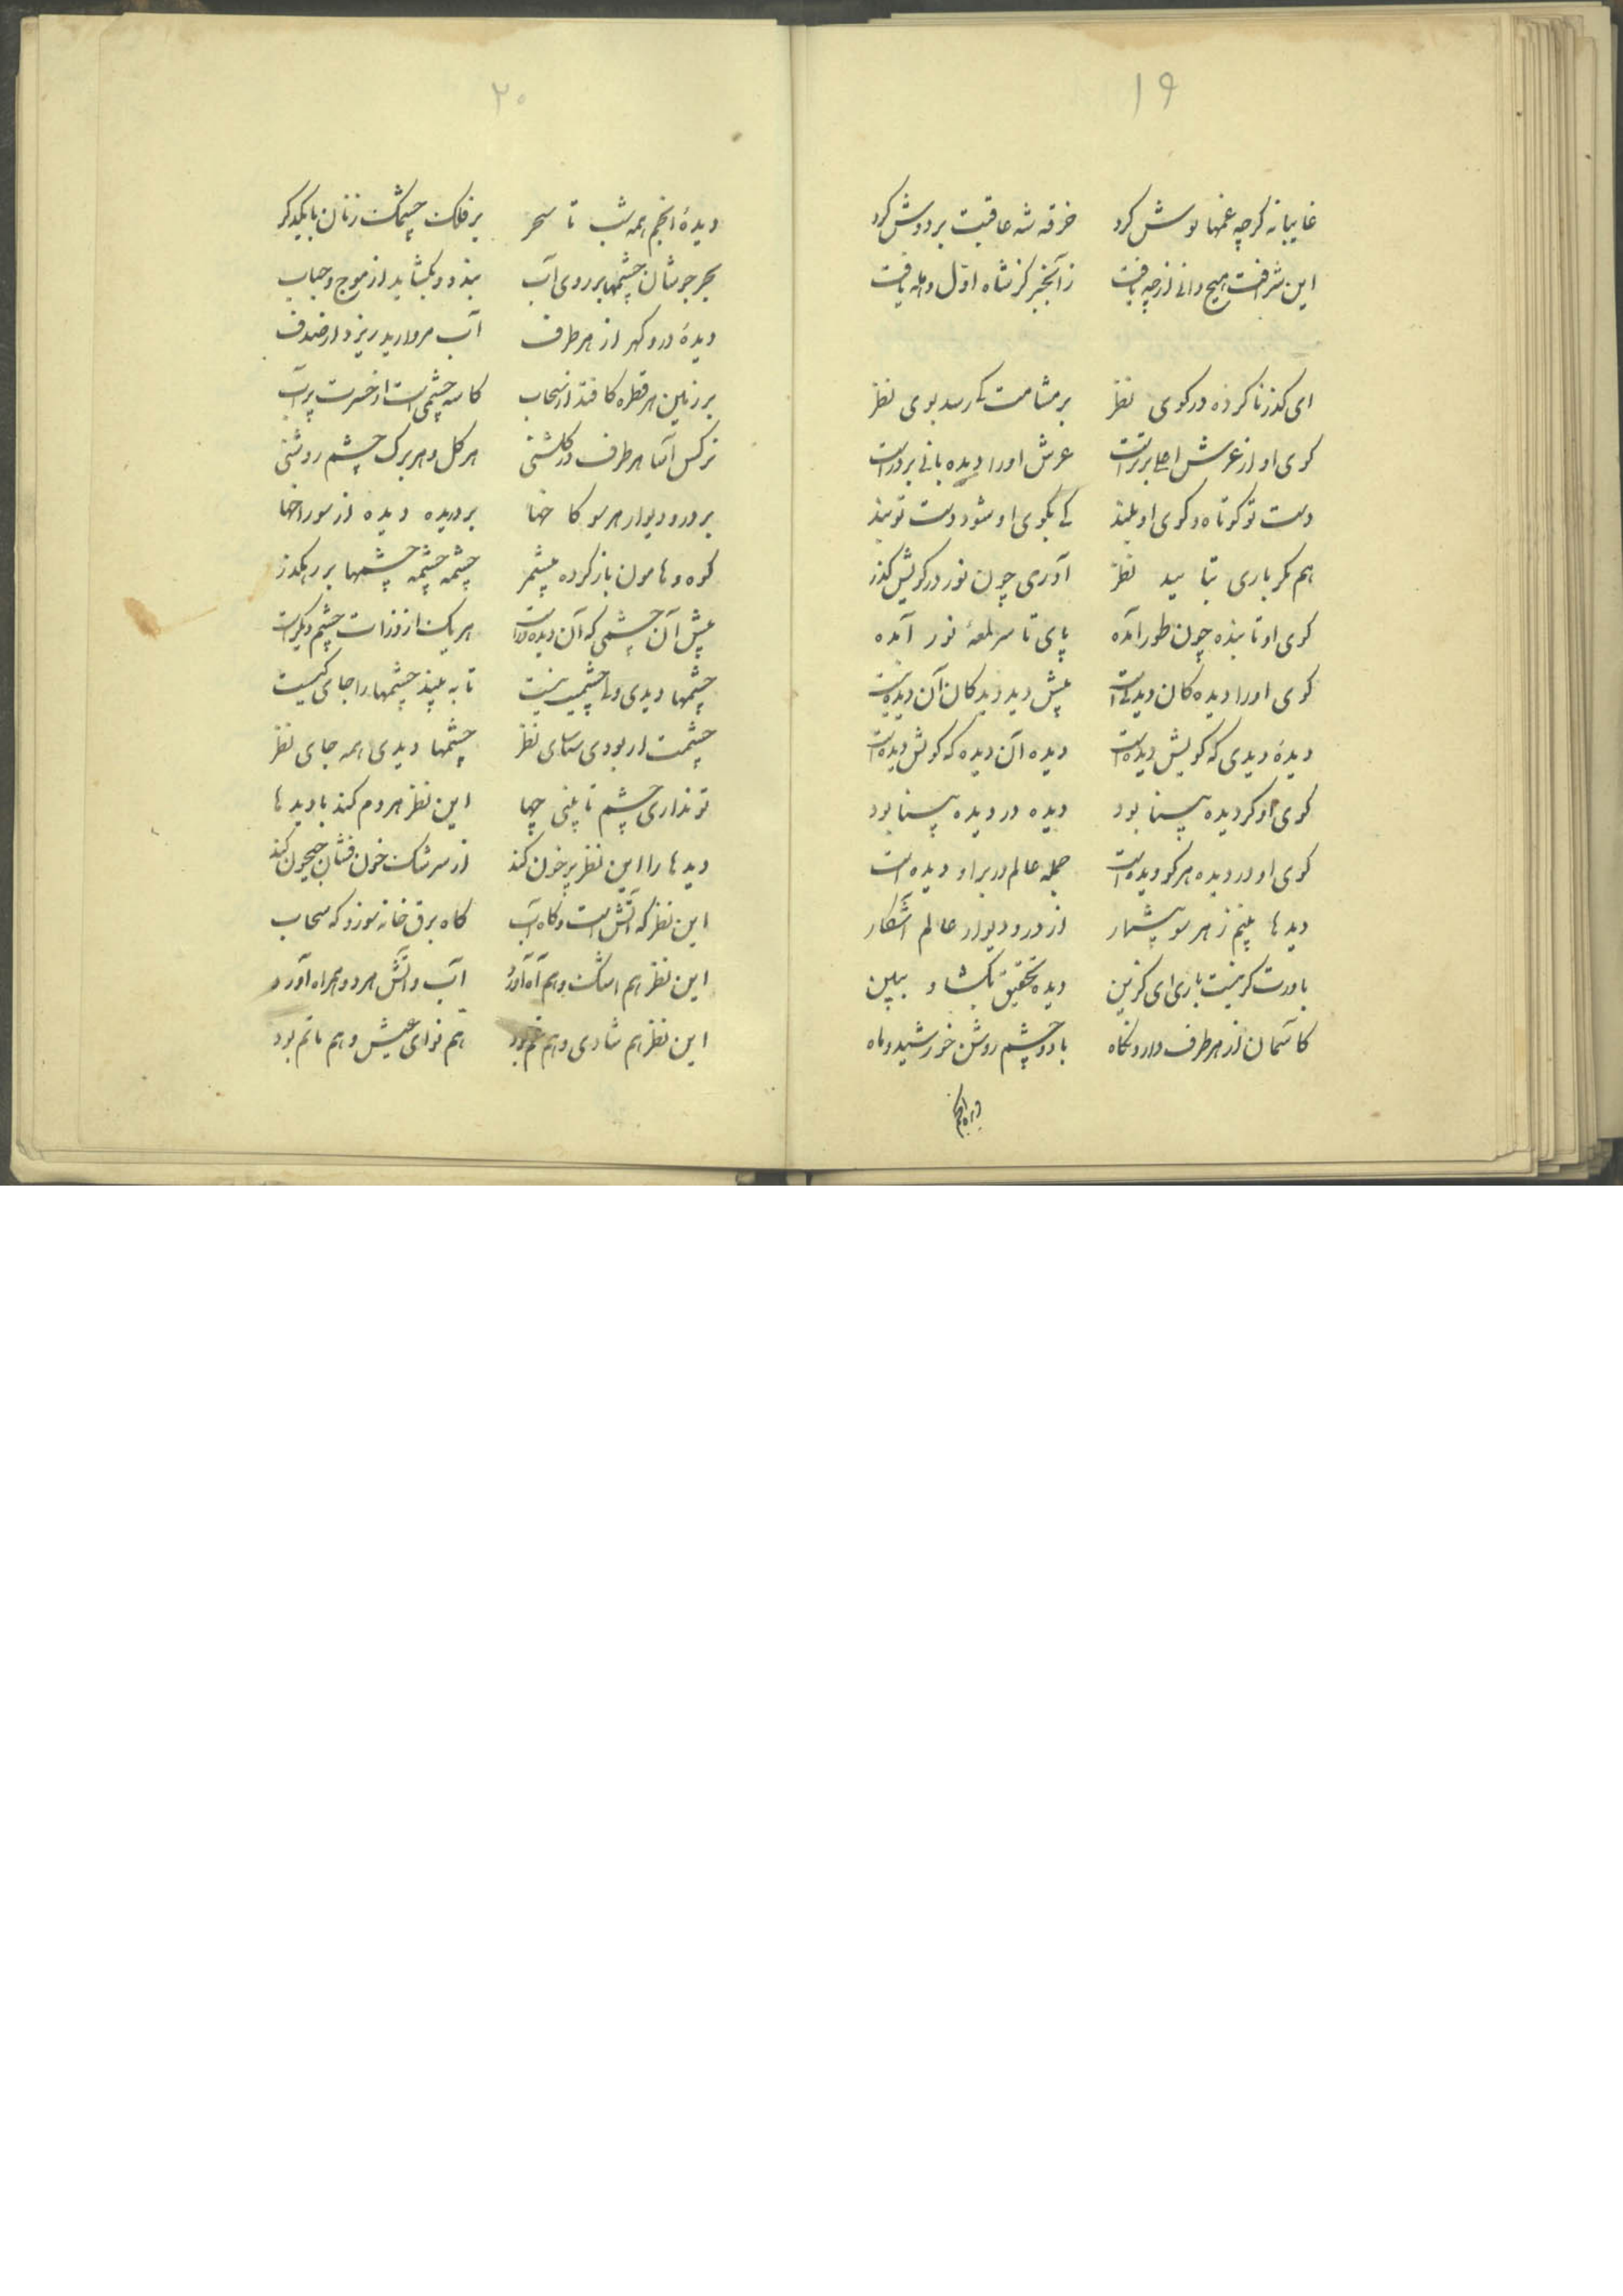 ۱۹
غایبانه کرچه غمها نوش کرد خرقه شه عاقبت بر دوش کرد
این شرافت هیچ دانی از چه یافت زآنخبر کز شاه اوّل وهله یافت
ای کذر ناکرده در کوی نظر بر مشامت کی رسد بوی نظر
کوی او از عرش اعلی برترست عرش او را دیده بانی بر درست
دست تو کوتاه و کوی او بلند کی بکوی او شود دست تو بند
هم مکر باری بتأیید نظر آوری چون نور در کویش کذر
کوی او تابنده چون طور آمده پای تا سر لمعهٔ نور آمده
کوی او را دیده کان دیدنی است پیش دید دیدکان آن دیده نیست
دیدهٔ دیدی که کویش دیده است دیده آن دیده که کویش دیده است
کوی او کر دیده بینا بود دیده در دیده بینا بود
کوی او در دیده هر کو دیده است جمله عالم در بر او دیده است
دیدها بینم ز هر سو بیشمار از در و دیوار عالم آشکار
باورت کر نیست باری ای کزین دیده تحقیق بکشا و ببین
کاسمان از هر طرف دارد نکاه با دو چشم روشن خورشید و ماه
دیده انجم
۲۰
دیدهٔ انجم همه شب تا سحر بر فلک چشمک زنان با یکدکر
بحر جوشان چشمها بر روی آب بندد و بکشاید از موج و حباب
دیدهٔ در و کهر از هر طرف آب مروارید ریزد از صدف
بر زمین هر قطره کافتد از سحاب کاسه چشمی است از حسرت پر آب
نرکس آسا هر طرف در کلشنی هر کل و هر برک چشم روشنی
بر در و دیوار هر سو کاخها بردریده دیده از سوراخها
کوه و هامون باز کرده بیشمر چشمه چشمه چشمها بر رهکذر
پیش آن چشمی که آن دیده ورست هر یک از ذرات چشم دیکرست
چشمها دیدی ولی چشمیت نیست تا به بیند چشمها را جای کیست
چشمت ار بودی شناسای نظر چشمها دیدی همه جای نظر
تو نداری چشم تا بینی چها این نظر هر دم کند با دیدها
دیدها را این نظر پر خون کند از سرشک خون فشان جیحون کند
این نظر که آتش است و کاه آب کاه برق خانه سوز و که سحاب
این نظر هم اشک و هم آه آورد آب و آتش هر دو همراه آورد
این نظر هم شادی و هم غم بود هم نوای عیش و هم ماتم بود